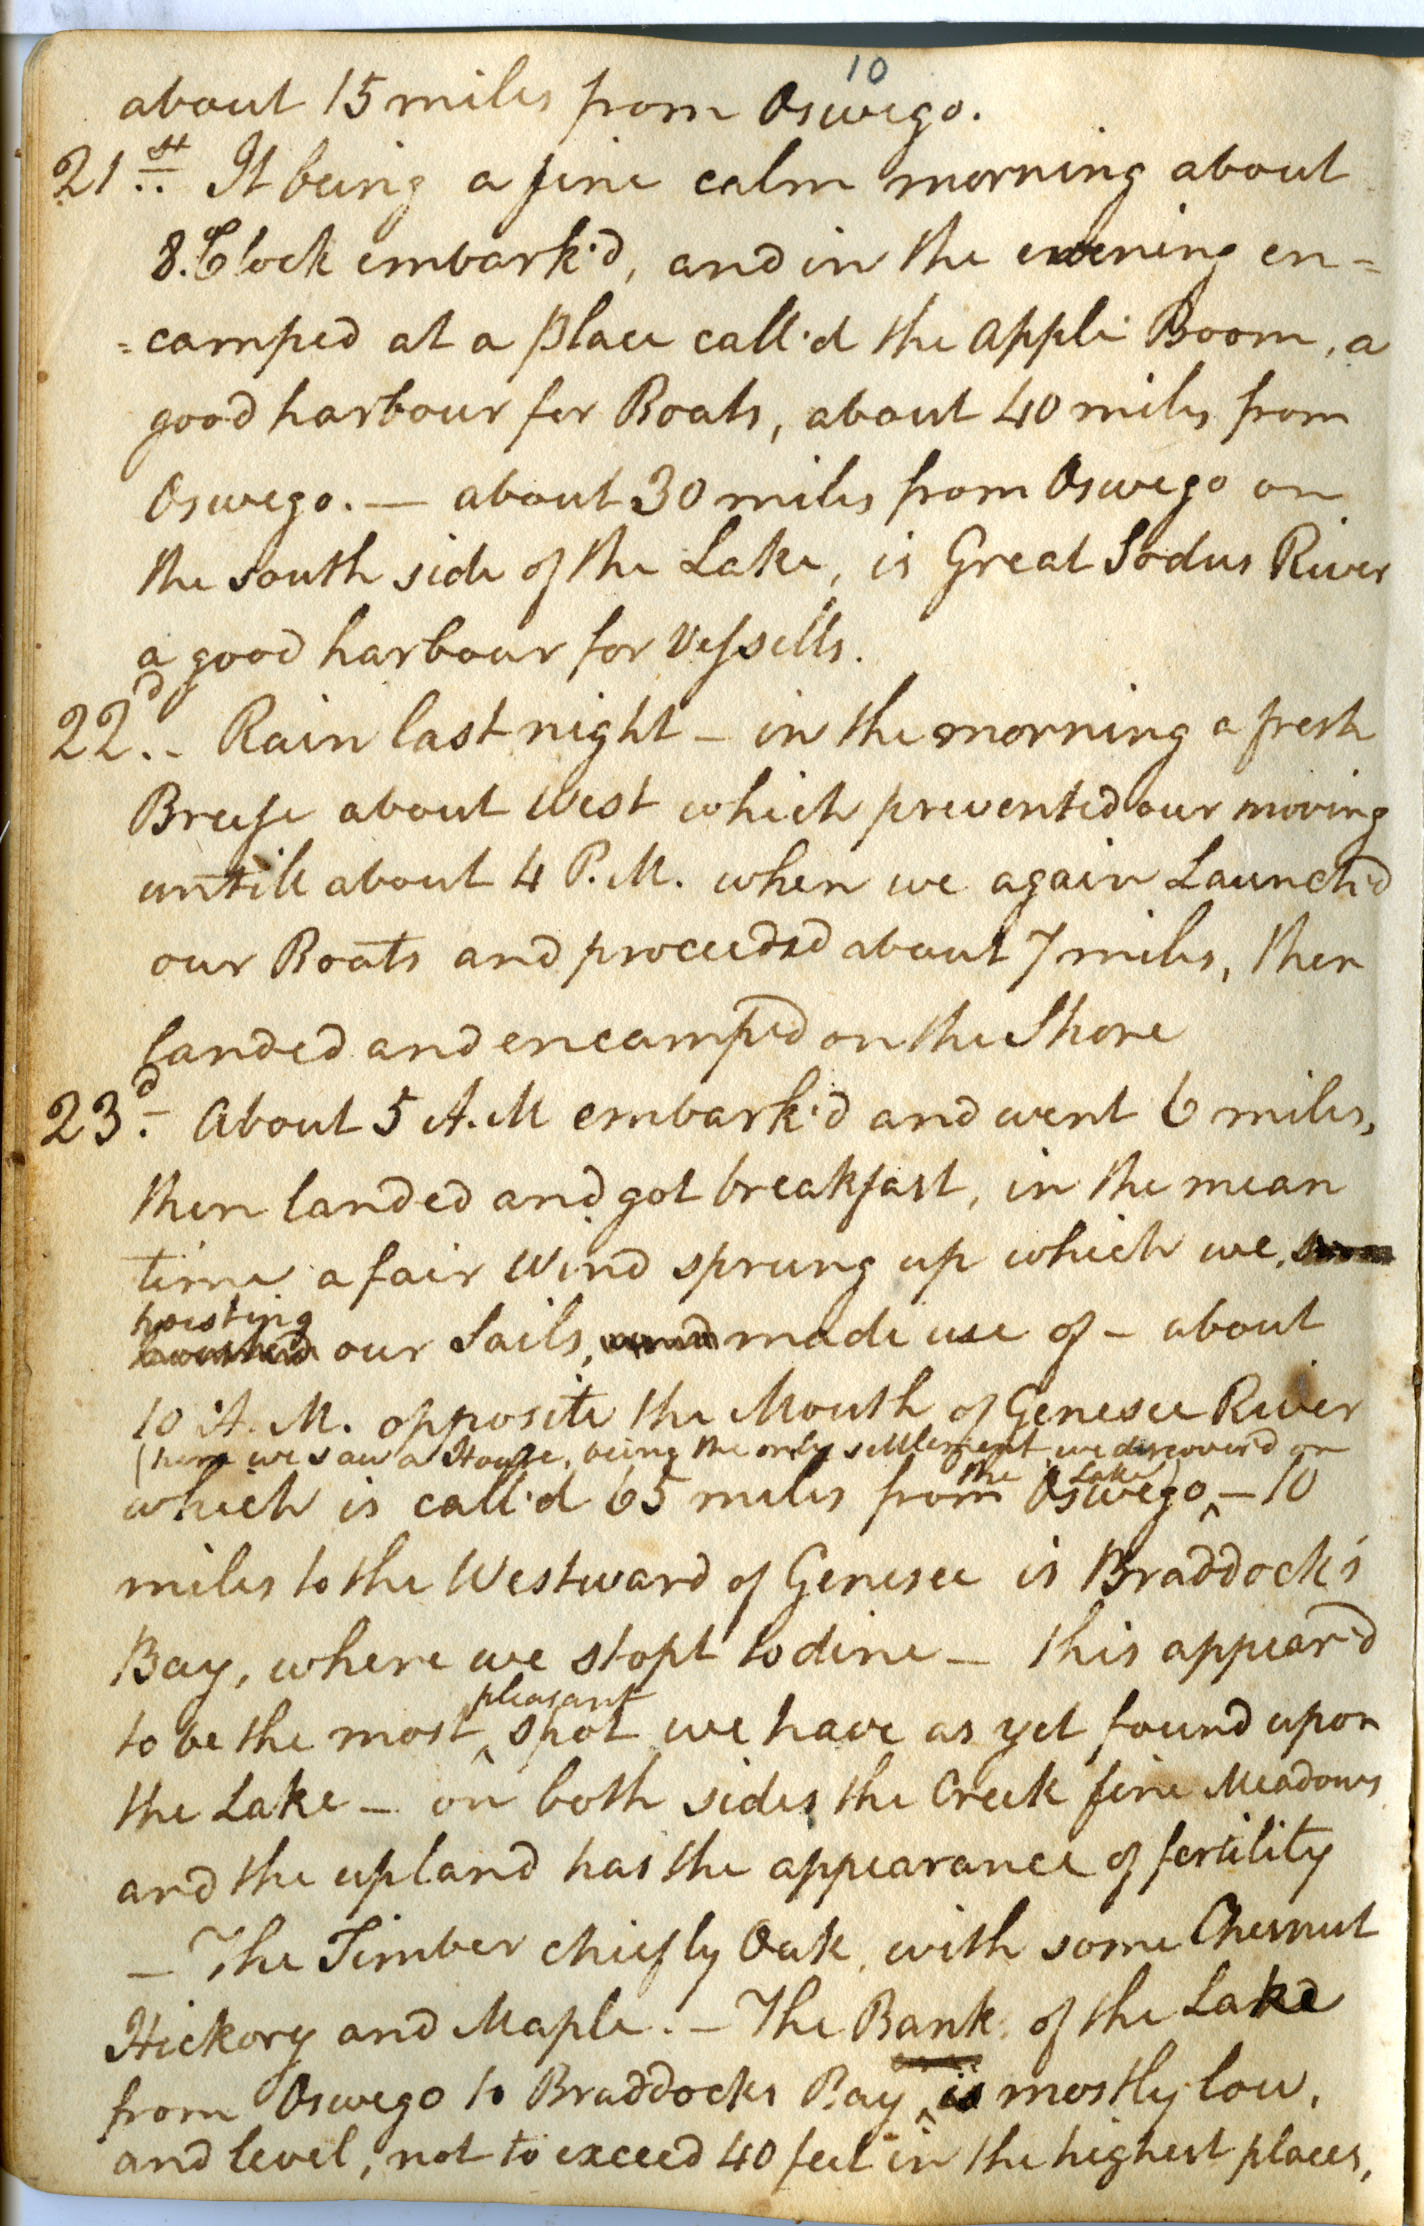 10
about 15 miles from Oswego.
21st. It being a fine calm morning about
8.Clock embark'd, and in the evening en=
=camped at a place call'd the apple Boom, a
good harbour for Boats, about 40 miles from
Oswego. — about 30 miles from Oswego on
the south side of the Lake, is Great Sodus River
a good harbour for Vessells.
22d.. Rain last night – in the morning a fresh
Breese about West which prevented our moving
untill about 4 P.M. when we again Launch'd
our Boats and proceeded about 7 miles, then
landed and encamp'd on the Shore
23d. About 5 A.M embark'd and went 6 miles,
then landed and got breakfast, in the mean
time a fair Wind sprung up which we,
hoisting
our Sails, made use of – about
10 A.M. opposite the Mouth of Genesee River
(here we saw a House, being the only settlement we discover'd on
the Lake)
which is call'd 65 miles from Oswego ^ – 10
miles to the Westward of Genesee is Braddock's
Bay, where we stopt to dine – this appear'd
pleasant
to be the most ^ spot we have as yet found upon
the Lake – on both sides the Creek fine Meadows
and the upland has the appearance of fertility
– The Timber chiefly Oak, with some Chesnut
Hickory and Maple. – The Bank of the Lake
from Oswego to Braddocks Bay ^ is mostly low,
and level, not to exceed 40 feet in the highest places,